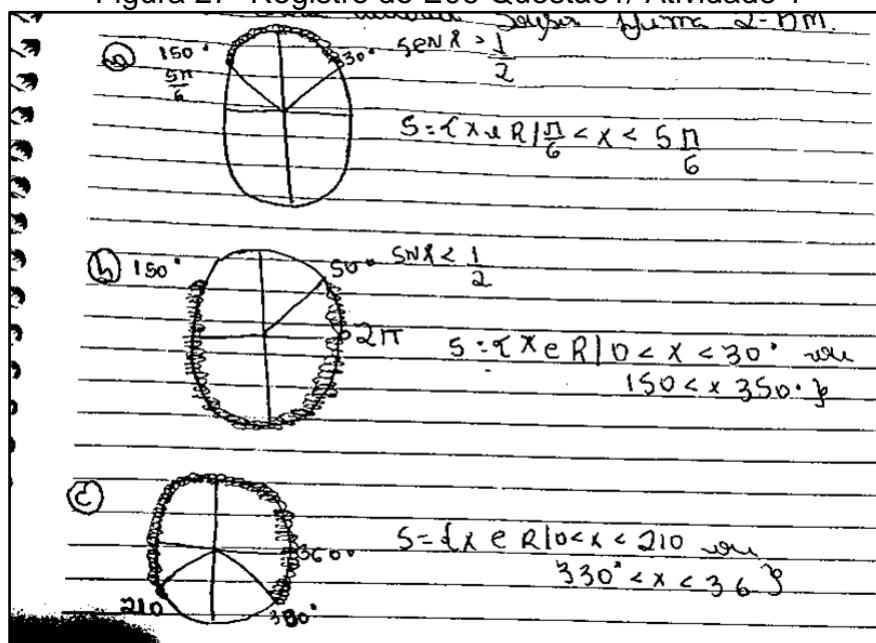 Figura 27- Registro de E06 Questão1/ Atividade 1
2-DM.
a) 150° 30° SENX > 1/2
5π/6
S = {X e R | π/6 < X < 5π/6
b) 150° 50° SNX < 1/2
2π
S = {X e R | 0 < X < 30° ou
150 < x 350° }
c)
360°
S = {X e R | 0 < X < 210 ou
330° < X < 36 }
210 330°